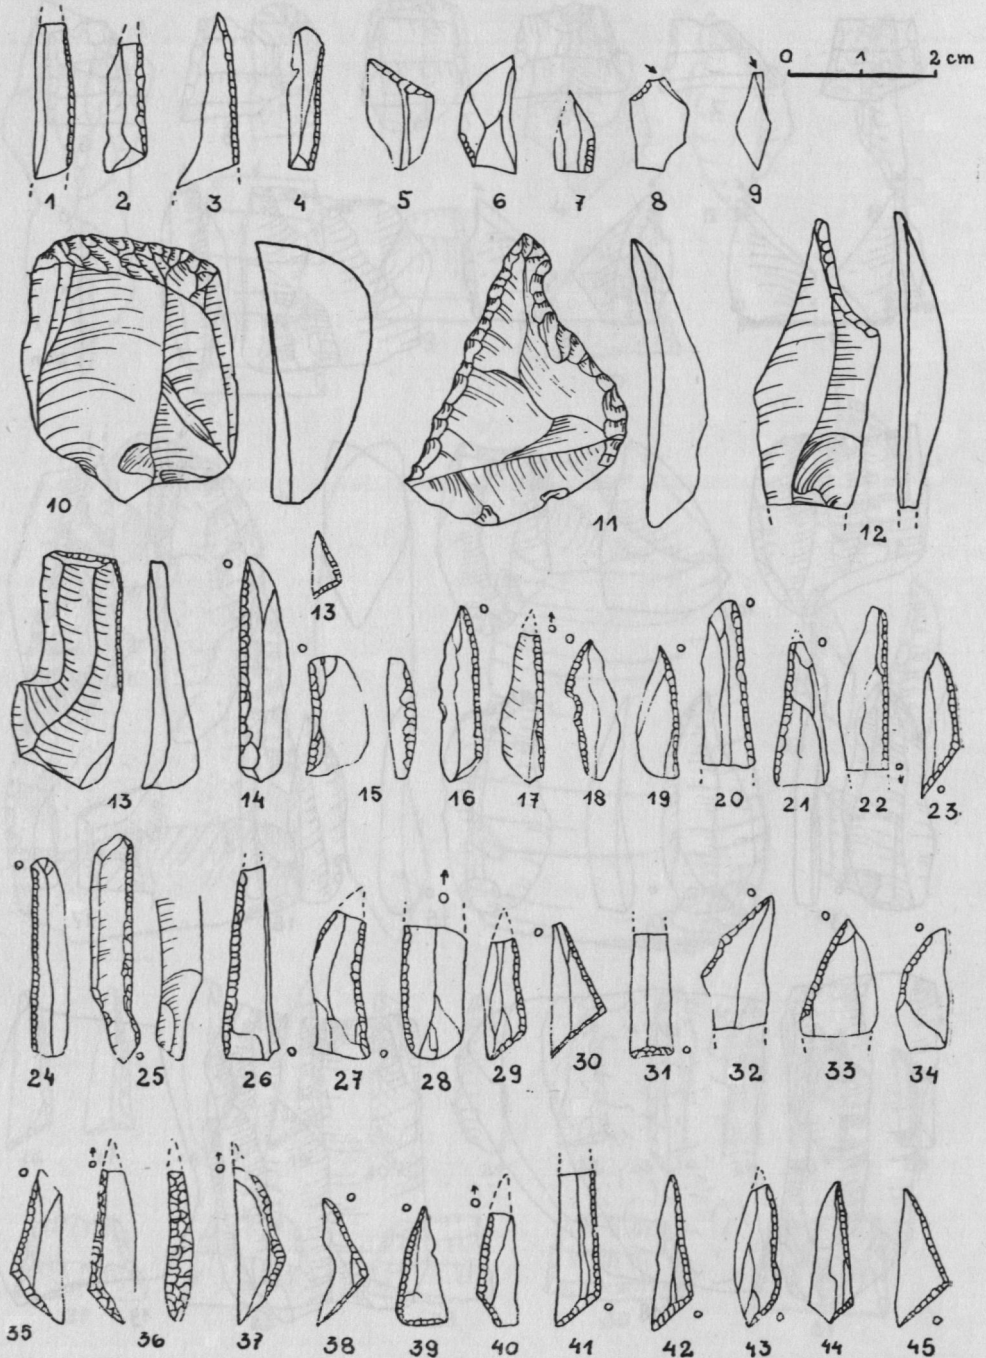 0 1 2 cm
1 2 3 4 5 6 7 8 9
10 11 12
13
13 14 15 16 17 18 19 20 21 22 23.
24 25 26 27 28 29 30 31 32 33 34
35 36 37 38 39 40 41 42 43 44 45